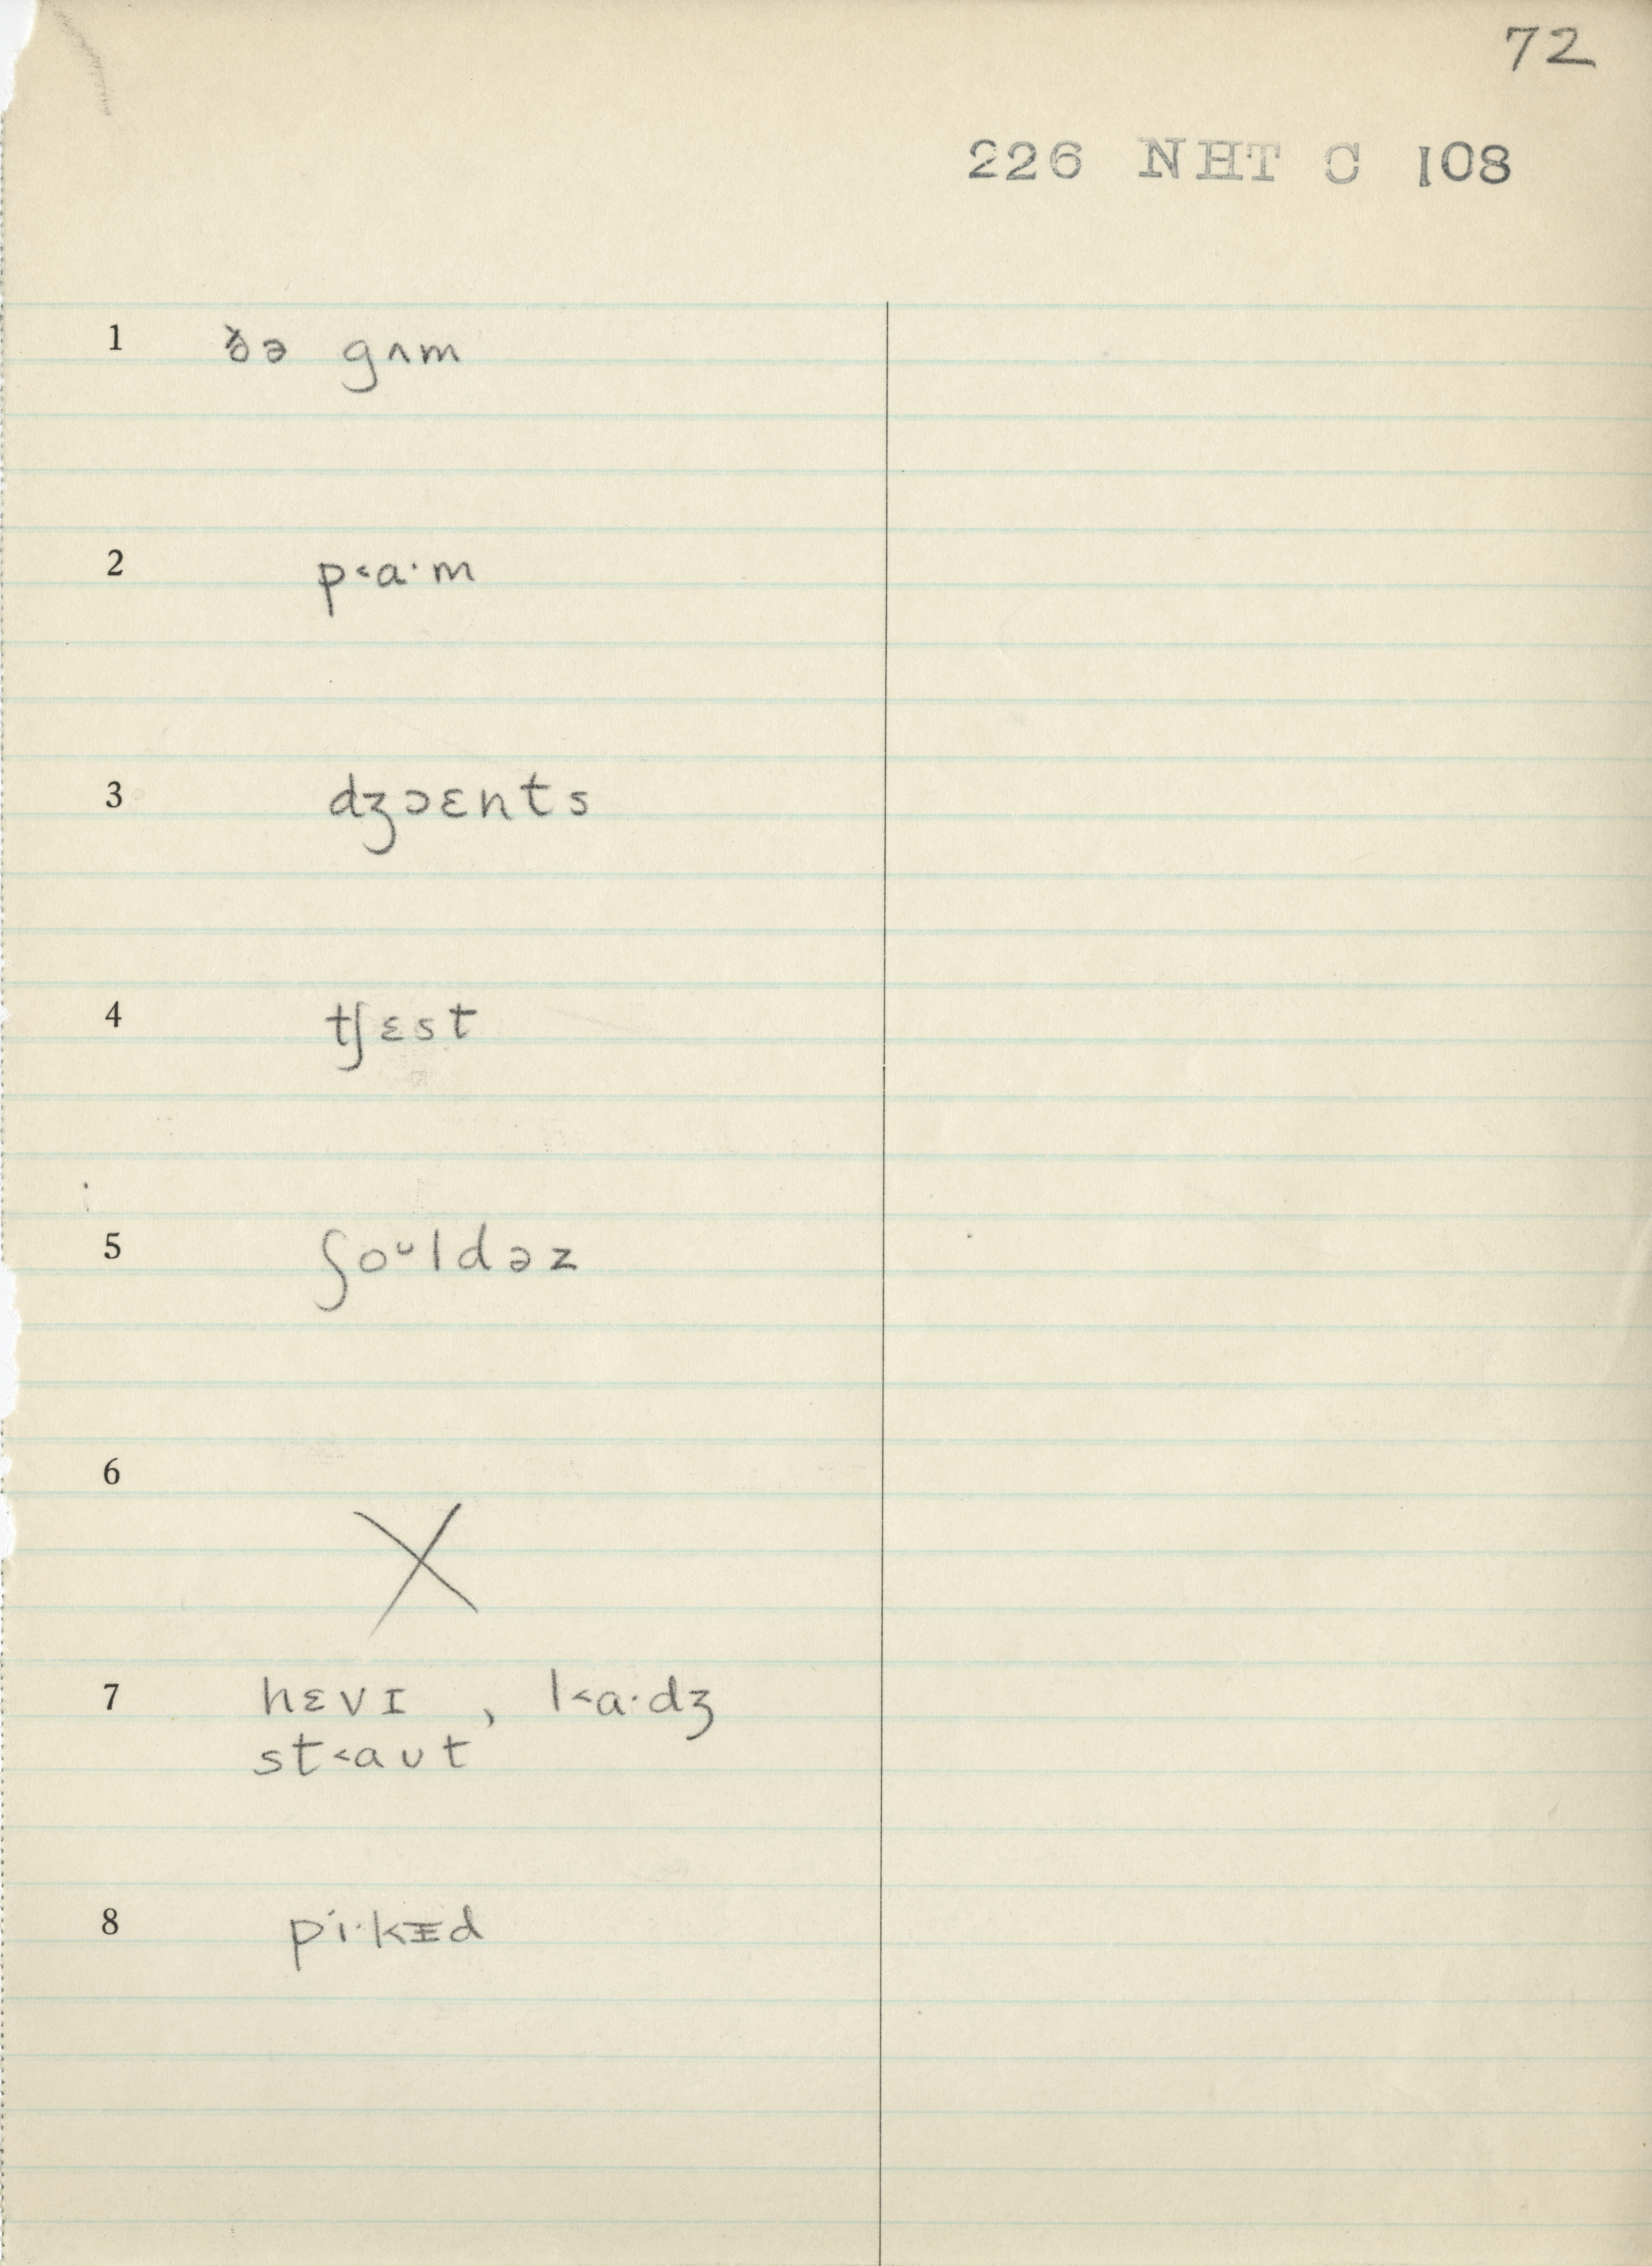 72
226 NHT C 108
1 ðə gʌm
2 p˂a·m
3 dʒɔɛnts
4 tʃɛst
5 ʃoᴗldəz
6 X
7 hɛvɪ , l˂a·dʒ
st˂aᴜt
8 pi·kᵻd